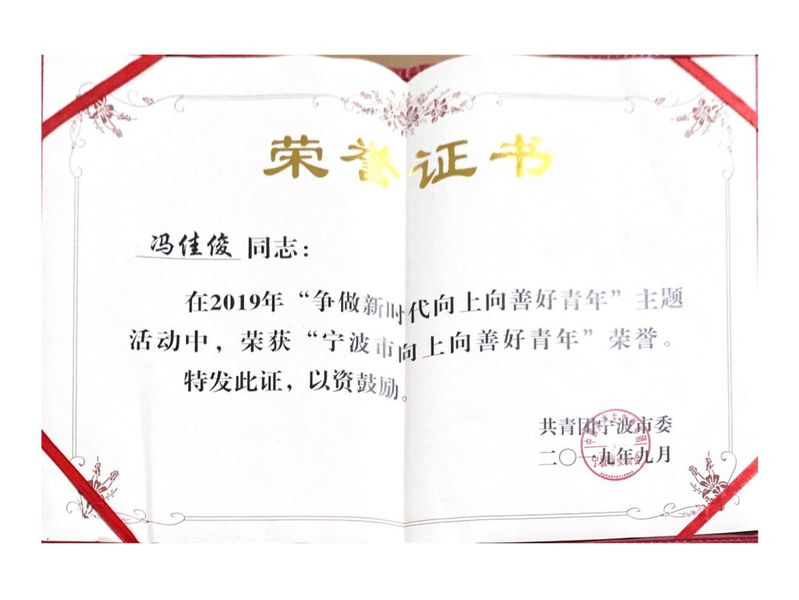 荣誉证书
冯佳俊 同志：
在2019年“争做新时代向上向善好青年”主题
活动中，荣获“宁波市向上向善好青年”荣誉。
特发此证，以资鼓励。
共青团宁波市委
二〇一九年九月